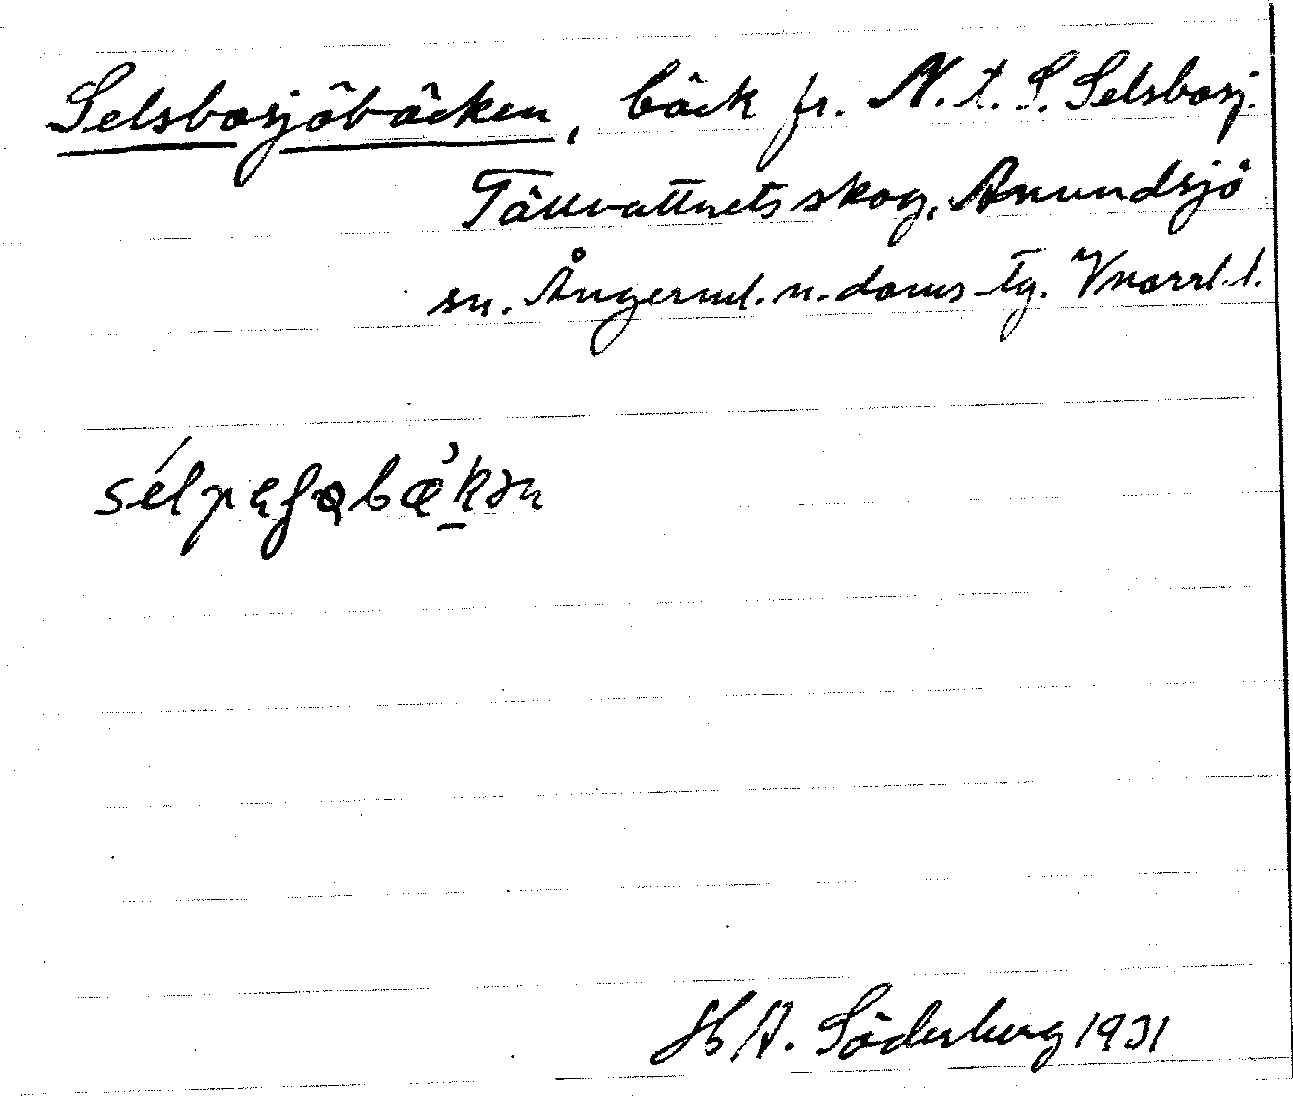 Selsbosjöbäcken, bäck fr. N. t. S. Selsbosj.
Tällvattnets skog, Anundsjö
sn. Ångerml. n. doms-tg. Vnorrl. l.
H A. Söderberg 1931